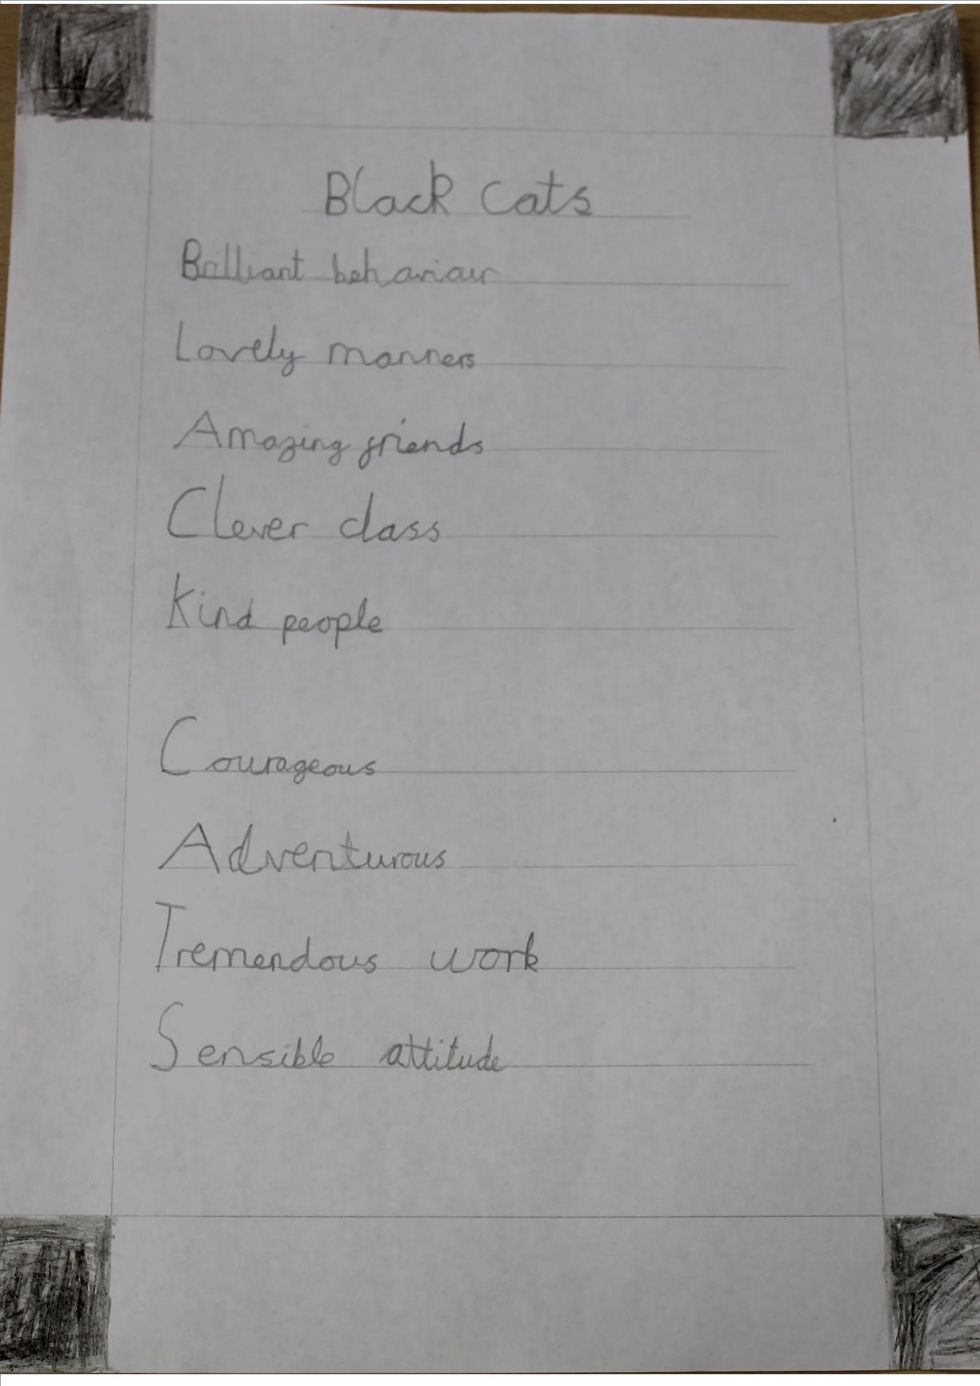 Black cats
Brilliant behaviour
Lovely manners
Amazing friends
Clever class
Kind people
Courageous
Adventurous
Tremendous work
Sensible attitude